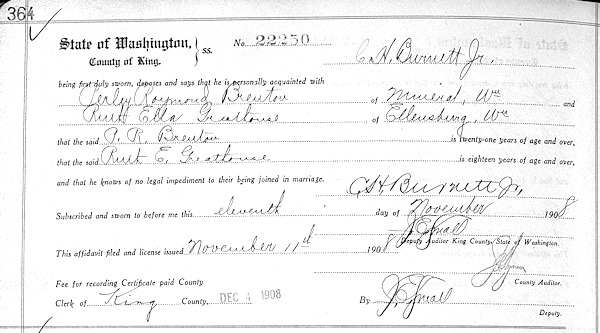 364
State of Washington, County of King. ss. No. 22250
C H Burnett Jr.
being first duly sworn, deposes and says that he is personally acquainted with
Perley Raymond Brenton of Mineral, Wn and
Ruth Ella Greathouse of Ellensburg, Wn
that the said P. R. Brenton is twenty-one years of age and over,
that the said Ruth E. Greathouse is eighteen years of age and over,
and that he knows of no legal impediment to their being joined in marriage.
C H Burnett Jr,
Subscribed and sworn to before me this eleventh day of November 1908
J E Small
Deputy Auditor King County, State of Washington.
This affidavit filed and license issued November 11th 1908
County Auditor.
Fee for recording Certificate paid County
Clerk of King County, DEC 4 1908 By J E Small
Deputy.